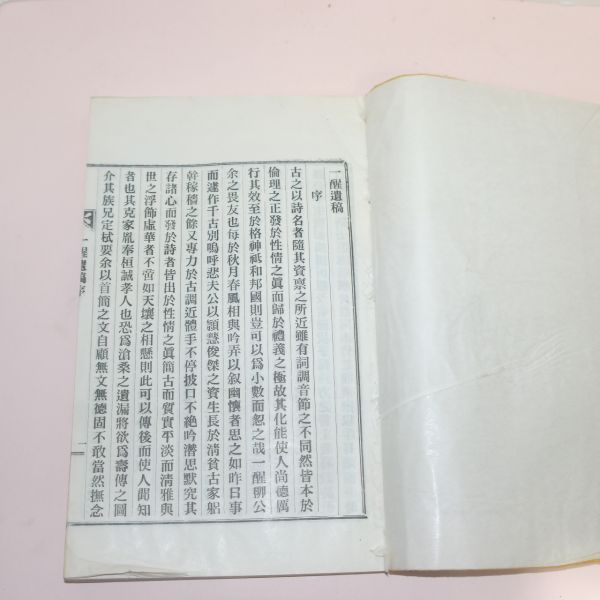 一醒遺稿
序
古之以詩名者隨其資稟之所近雖有詞調音節之不同然皆本於
倫理之正發於性情之眞而歸於禮義之極故其化能使人尚德厲
行其效至於格神祇和邦國則豈可以爲小數而忽之哉一醒聊公
余之畏友也每於秋月春風相與吟弄以叙幽懷者思之如昨日事
而遽作千古別嗚呼悲夫公以頴慧俊傑之資生長於淸貧古家躬
幹稼穡之餘又專力於古調近體手不停披口不絶吟潛思默究其
存諸心而發於詩者皆出於性情之眞簡古而質實平淡而淸雅與
世之浮飾虛華者不啻如天壤之相懸則此可以傳後而使人聞知
者也其克家胤奉桓誠孝人也恐爲滄桑之遺漏將欲爲壽傳之圖
介其族兄定栻要余以首簡之文自顧無文無德固不敢當然撫念
一醒遺稿序
一